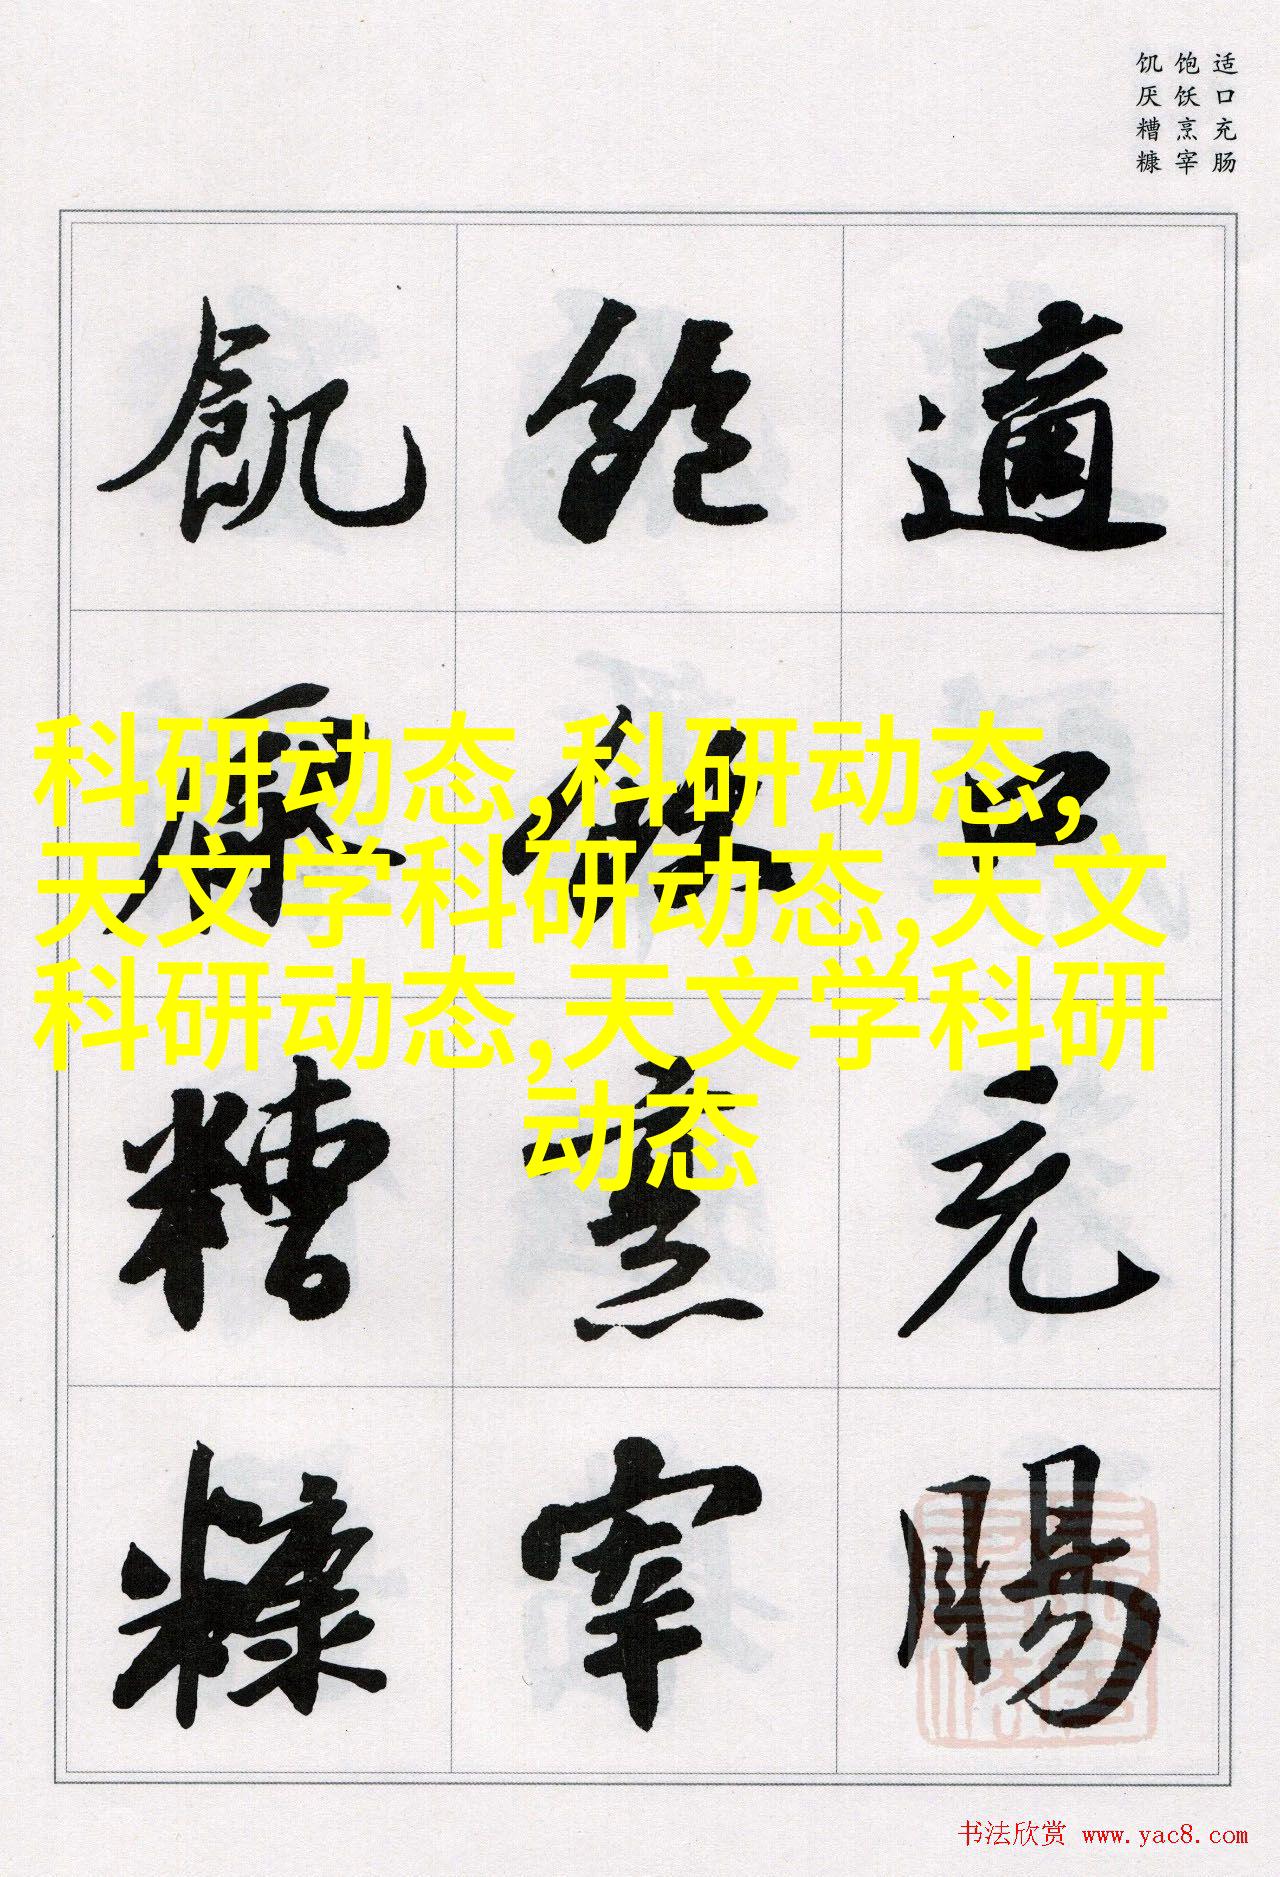 适口充肠
饱饫烹宰
饥厌糟糠
適口充腸
飽飫烹宰
飢厭糟糠
科研动态,科研动态,
天文学科研动态,天文
科研动态,天文学科研
动态
书法欣赏 www.yac8.com